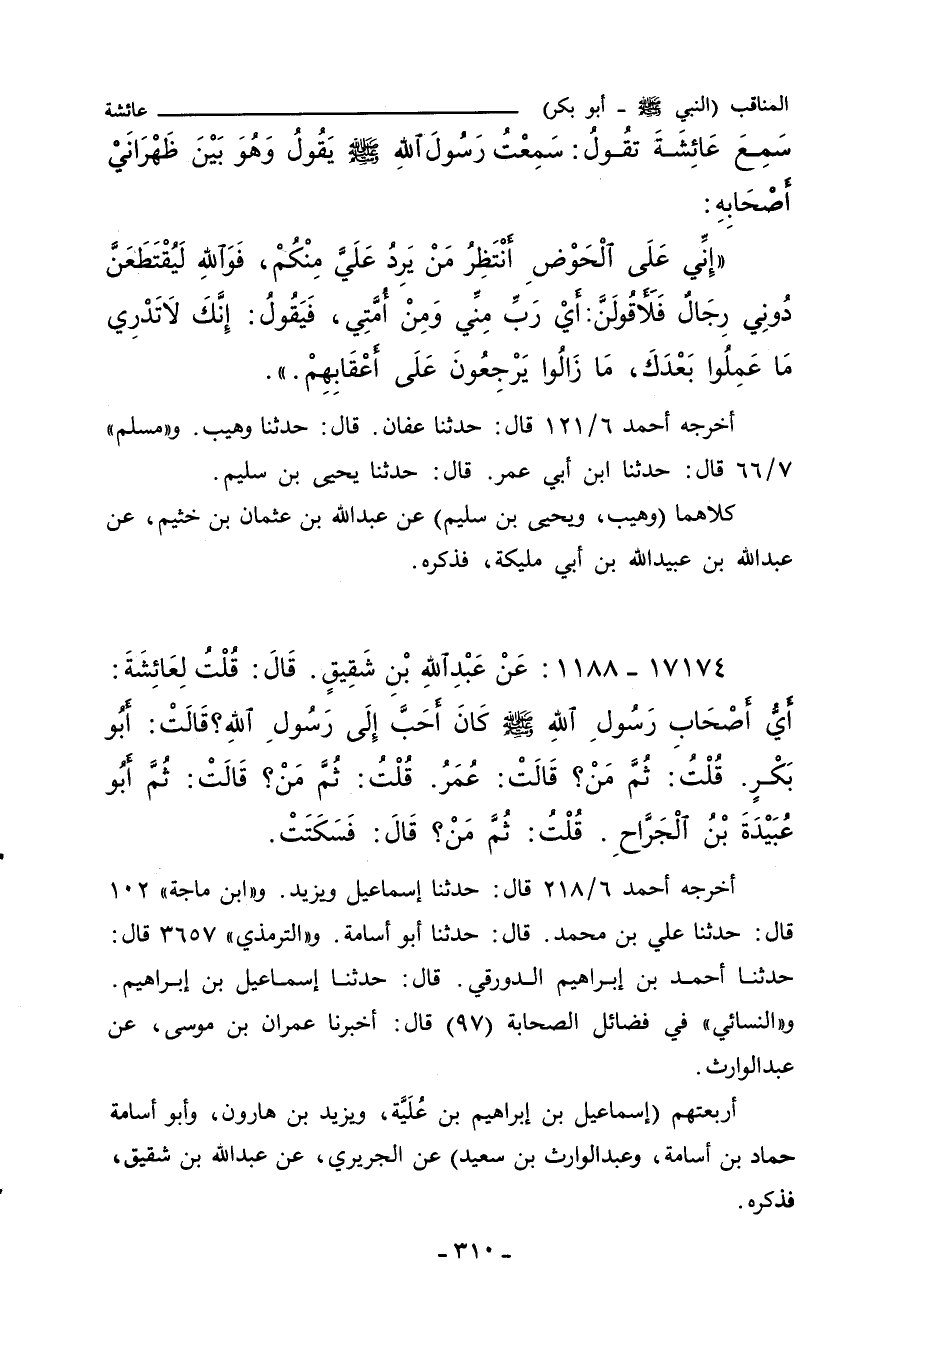 المناقب (النبي ﷺ - أبو بكر) ــــــــــــــ عائشة
سَمِعَ عَائِشَةَ تَقُولُ: سَمِعْتُ رَسُولَ ٱللهِ ﷺ يَقُولُ وَهُوَ بَيْنَ ظَهْرَانَيْ
أَصْحَابِهِ:
«إِنِّي عَلَى ٱلْحَوْضِ أَنْتَظِرُ مَنْ يَرِدُ عَلَيَّ مِنْكُمْ، فَوَٱللهِ لَيُقْتَطَعَنَّ
دُونِي رِجَالٌ فَلَأَقُولَنَّ: أَيْ رَبِّ مِنِّي وَمِنْ أُمَّتِي، فَيَقُولُ: إِنَّكَ لَاتَدْرِي
مَا عَمِلُوا بَعْدَكَ، مَا زَالُوا يَرْجِعُونَ عَلَى أَعْقَابِهِمْ.».
أخرجه أحمد ٦/‏١٢١ قال: حدثنا عفان. قال: حدثنا وهيب. و«مسلم»
٧/‏٦٦ قال: حدثنا ابن أبي عمر. قال: حدثنا يحيى بن سليم.
كلاهما (وهيب، ويحيى بن سليم) عن عبدالله بن عثمان بن خثيم، عن
عبدالله بن عبيدالله بن أبي مليكة، فذكره.
١٧١٧٤ - ١١٨٨: عَنْ عَبْدِٱللهِ بْنِ شَقِيقٍ. قَالَ: قُلْتُ لِعَائِشَةَ:
أَيُّ أَصْحَابِ رَسُولِ ٱللهِ ﷺ كَانَ أَحَبَّ إِلَى رَسُولِ ٱللهِ؟ قَالَتْ: أَبُو
بَكْرٍ. قُلْتُ: ثُمَّ مَنْ؟ قَالَتْ: عُمَرُ. قُلْتُ: ثُمَّ مَنْ؟ قَالَتْ: ثُمَّ أَبُو
عُبَيْدَةَ بْنُ ٱلْجَرَّاحِ. قُلْتُ: ثُمَّ مَنْ؟ قَالَ: فَسَكَتَتْ.
أخرجه أحمد ٦/‏٢١٨ قال: حدثنا إسماعيل ويزيد. و«ابن ماجة» ١٠٢
قال: حدثنا علي بن محمد. قال: حدثنا أبو أسامة. و«الترمذي» ٣٦٥٧ قال:
حدثنا أحمد بن إبراهيم الدورقي. قال: حدثنا إسماعيل بن إبراهيم.
و«النسائي» في فضائل الصحابة (٩٧) قال: أخبرنا عمران بن موسى، عن
عبدالوارث.
أربعتهم (إسماعيل بن إبراهيم بن عُلَيَّة، ويزيد بن هارون، وأبو أسامة
حماد بن أسامة، وعبدالوارث بن سعيد) عن الجريري، عن عبدالله بن شقيق،
فذكره.
- ٣١٠ -